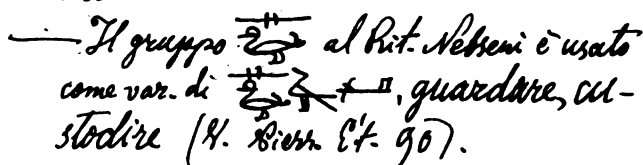 — Il gruppo al Rit. Nebseni è usato
come var. di , guardare, cu-
stodire (V. Pierr. Ét. 90).